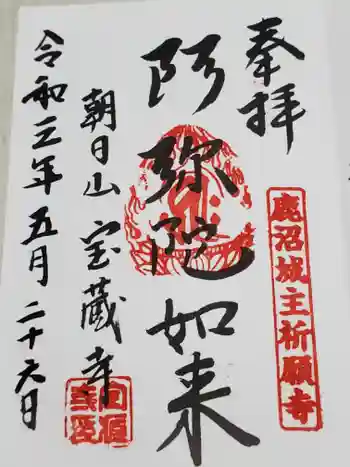 奉拝
鹿沼城主祈願寺
阿弥陀如来
朝日山 宝蔵寺
令和三年五月二十六日